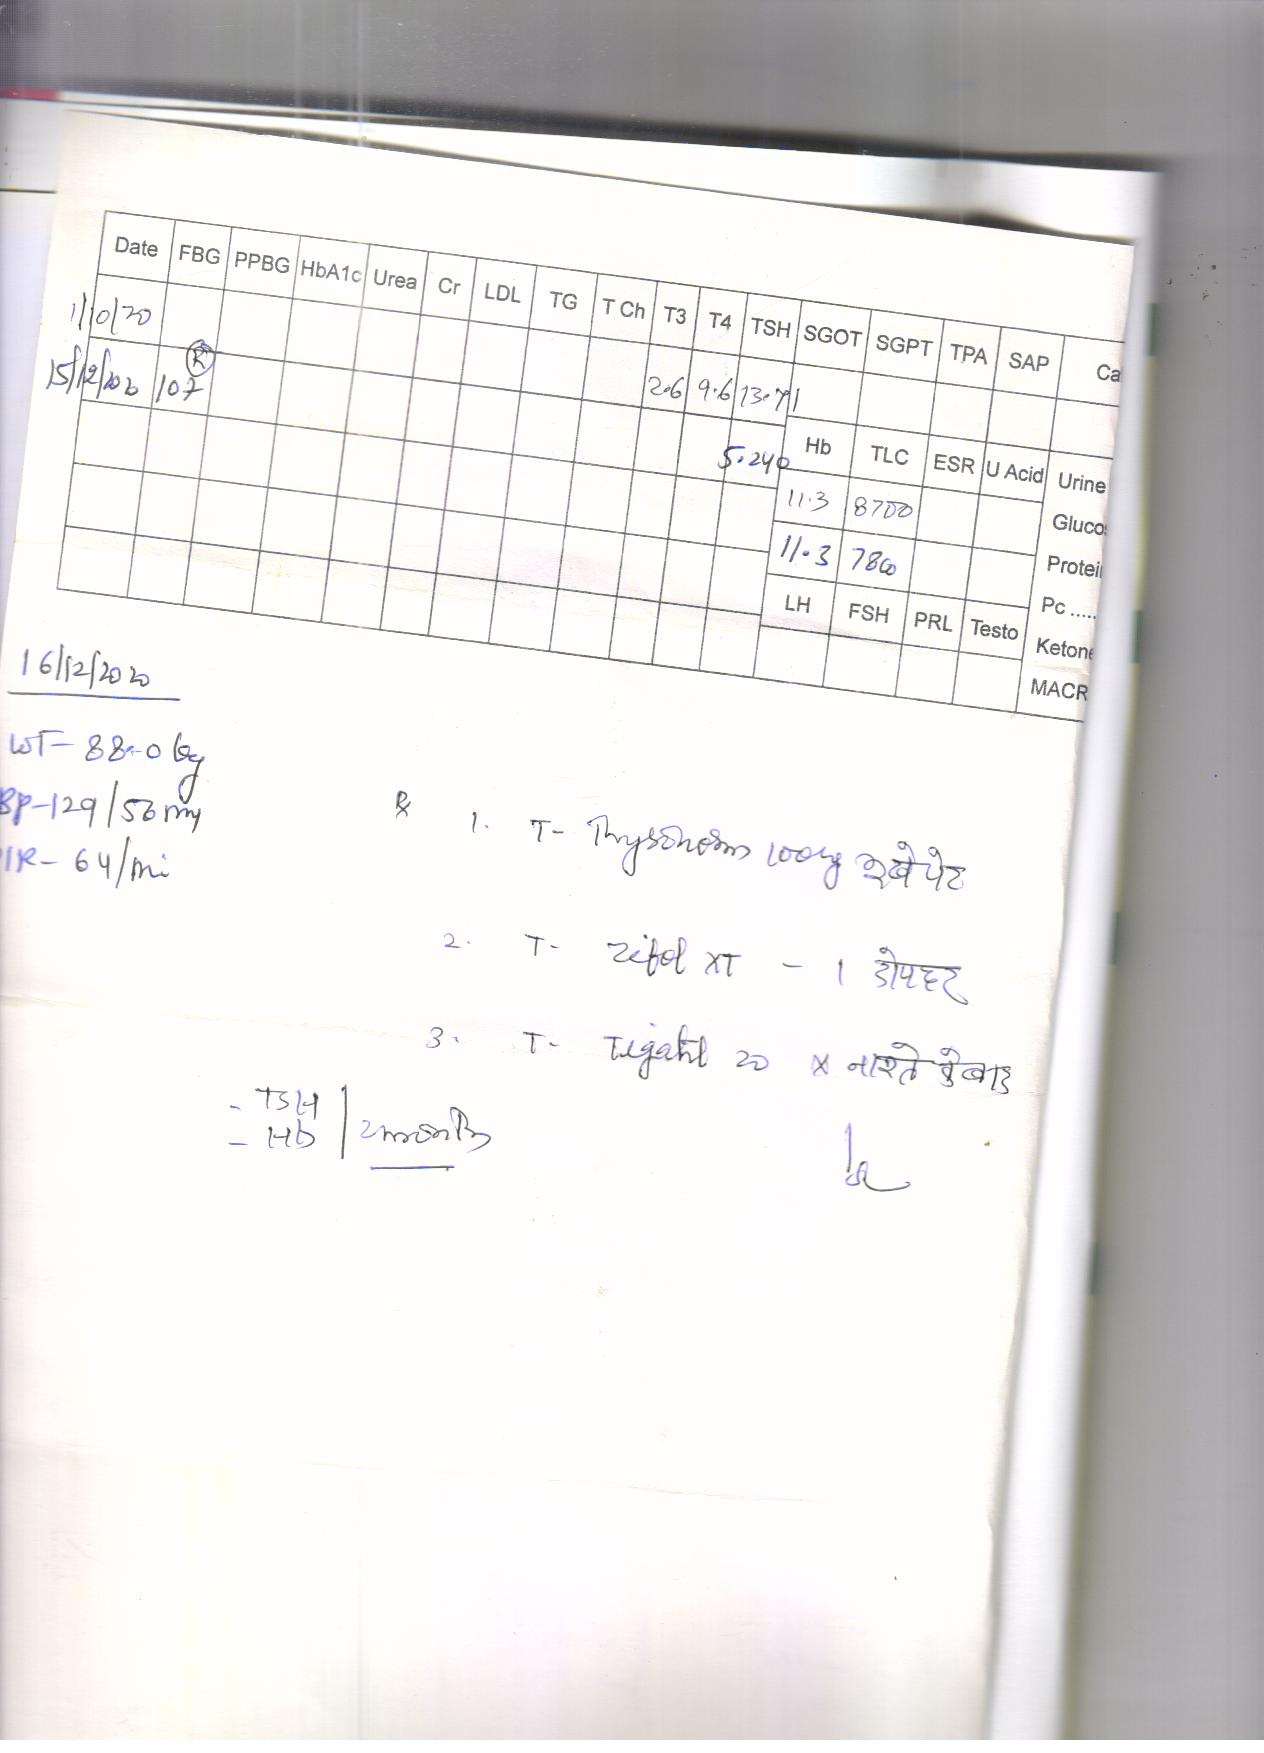 Date FBG PPBG HbA1c Urea Cr LDL TG T Ch T3 T4 TSH SGOT SGPT TPA SAP Ca
1/10/20 2.6 9.6 13.71
15/12/2020 107 R 5.240
Hb TLC ESR U Acid Urine
11.3 8700 Gluco
11.3 7800 Protei
LH FSH PRL Testo Pc .....
Ketone
MACR
16/12/2020
WT- 88.0 kg
BP-129/56 my
64/mi
Rx 1. T- Thyronorm 100 पेट
2. T- Zifol XT - 1 दोपहर
3. T- 20 x नाश्ते के बाद
- TSH
- Hb 2 months